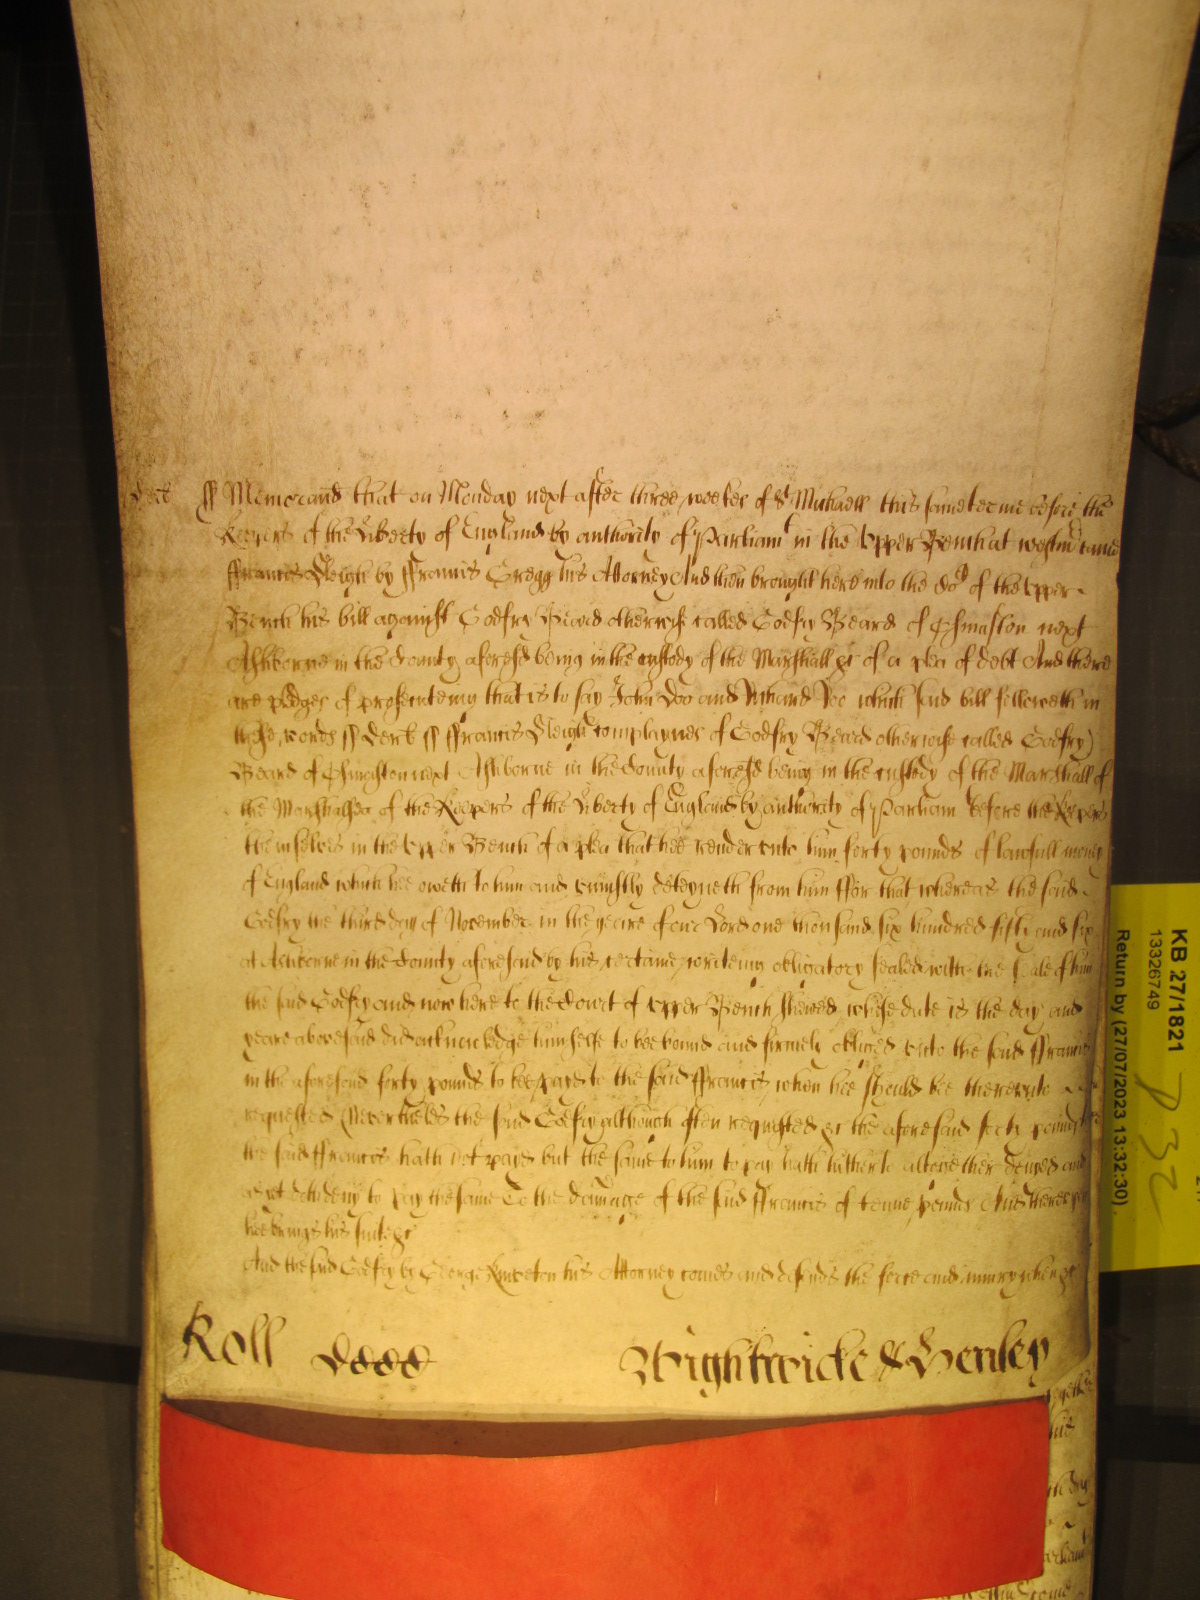 Derb ss Memorand that on Monday next after three weekes of St Michaell this same terme before the
Keepers of the Liberty of England by authority of Parliamt in the Upper Bench at Westmr came
ffrancis Sleigh by ffrancis Gregg his Attorney And then brought here into the Cot of the Upper
Bench his bill against Godfry Beard otherwise called Godfry Beard of Snelston next
Ashborne in the County aforesd being in the custody of the Marshall &c of a plea of debt And there
are pledges of prosecuteing that is to say John Doo and Richard Roo which said bill followeth in
these words ss Derb ss ffrancis Sleigh complaynes of Godfry Beard otherwise called Godfry
Beard of next Ashborne in the County aforesd being in the custody of the Marshall of
the Marshalsea of the Keepers of the Liberty of England by authority of Parliam before the Keepers
themselves in the Upper Bench of a plea that hee render unto him forty pounds of lawfull money
of England which hee oweth to him and uniustly deteyneth from him ffor that whereas the said
Godfry the third day of November in the yeare of our Lord one thousand six hundred fifty and six
at Ashborne in the County aforesaid by his certaine writeing obligatory sealed with the seale of him
the said Godfry and now here to the Court of Upper Bench shewed whose date is the day and
yeare abovesaid did acknowledge himselfe to bee bound and firmely obliged unto the said ffrancis
in the aforesaid forty pounds to bee payd to the said ffrancis when hee should bee thereunto
requested Neverthelesse the said Godfry although often requested &c the aforesaid forty pounds to
the said ffrancis hath not payd but the same to him to pay hath hitherto altogether denyed and
as yet doth deny to pay the same To the damage of the said ffrancis of tenne pounds And thereupon
hee brings his suite &c
And the said Godfry by George his Attorney comes and defends the force and iniury when &c
Roll Wightwicke & Henley
KB 27/1821
13326749
Return by (27/07/2023 13:32:30)